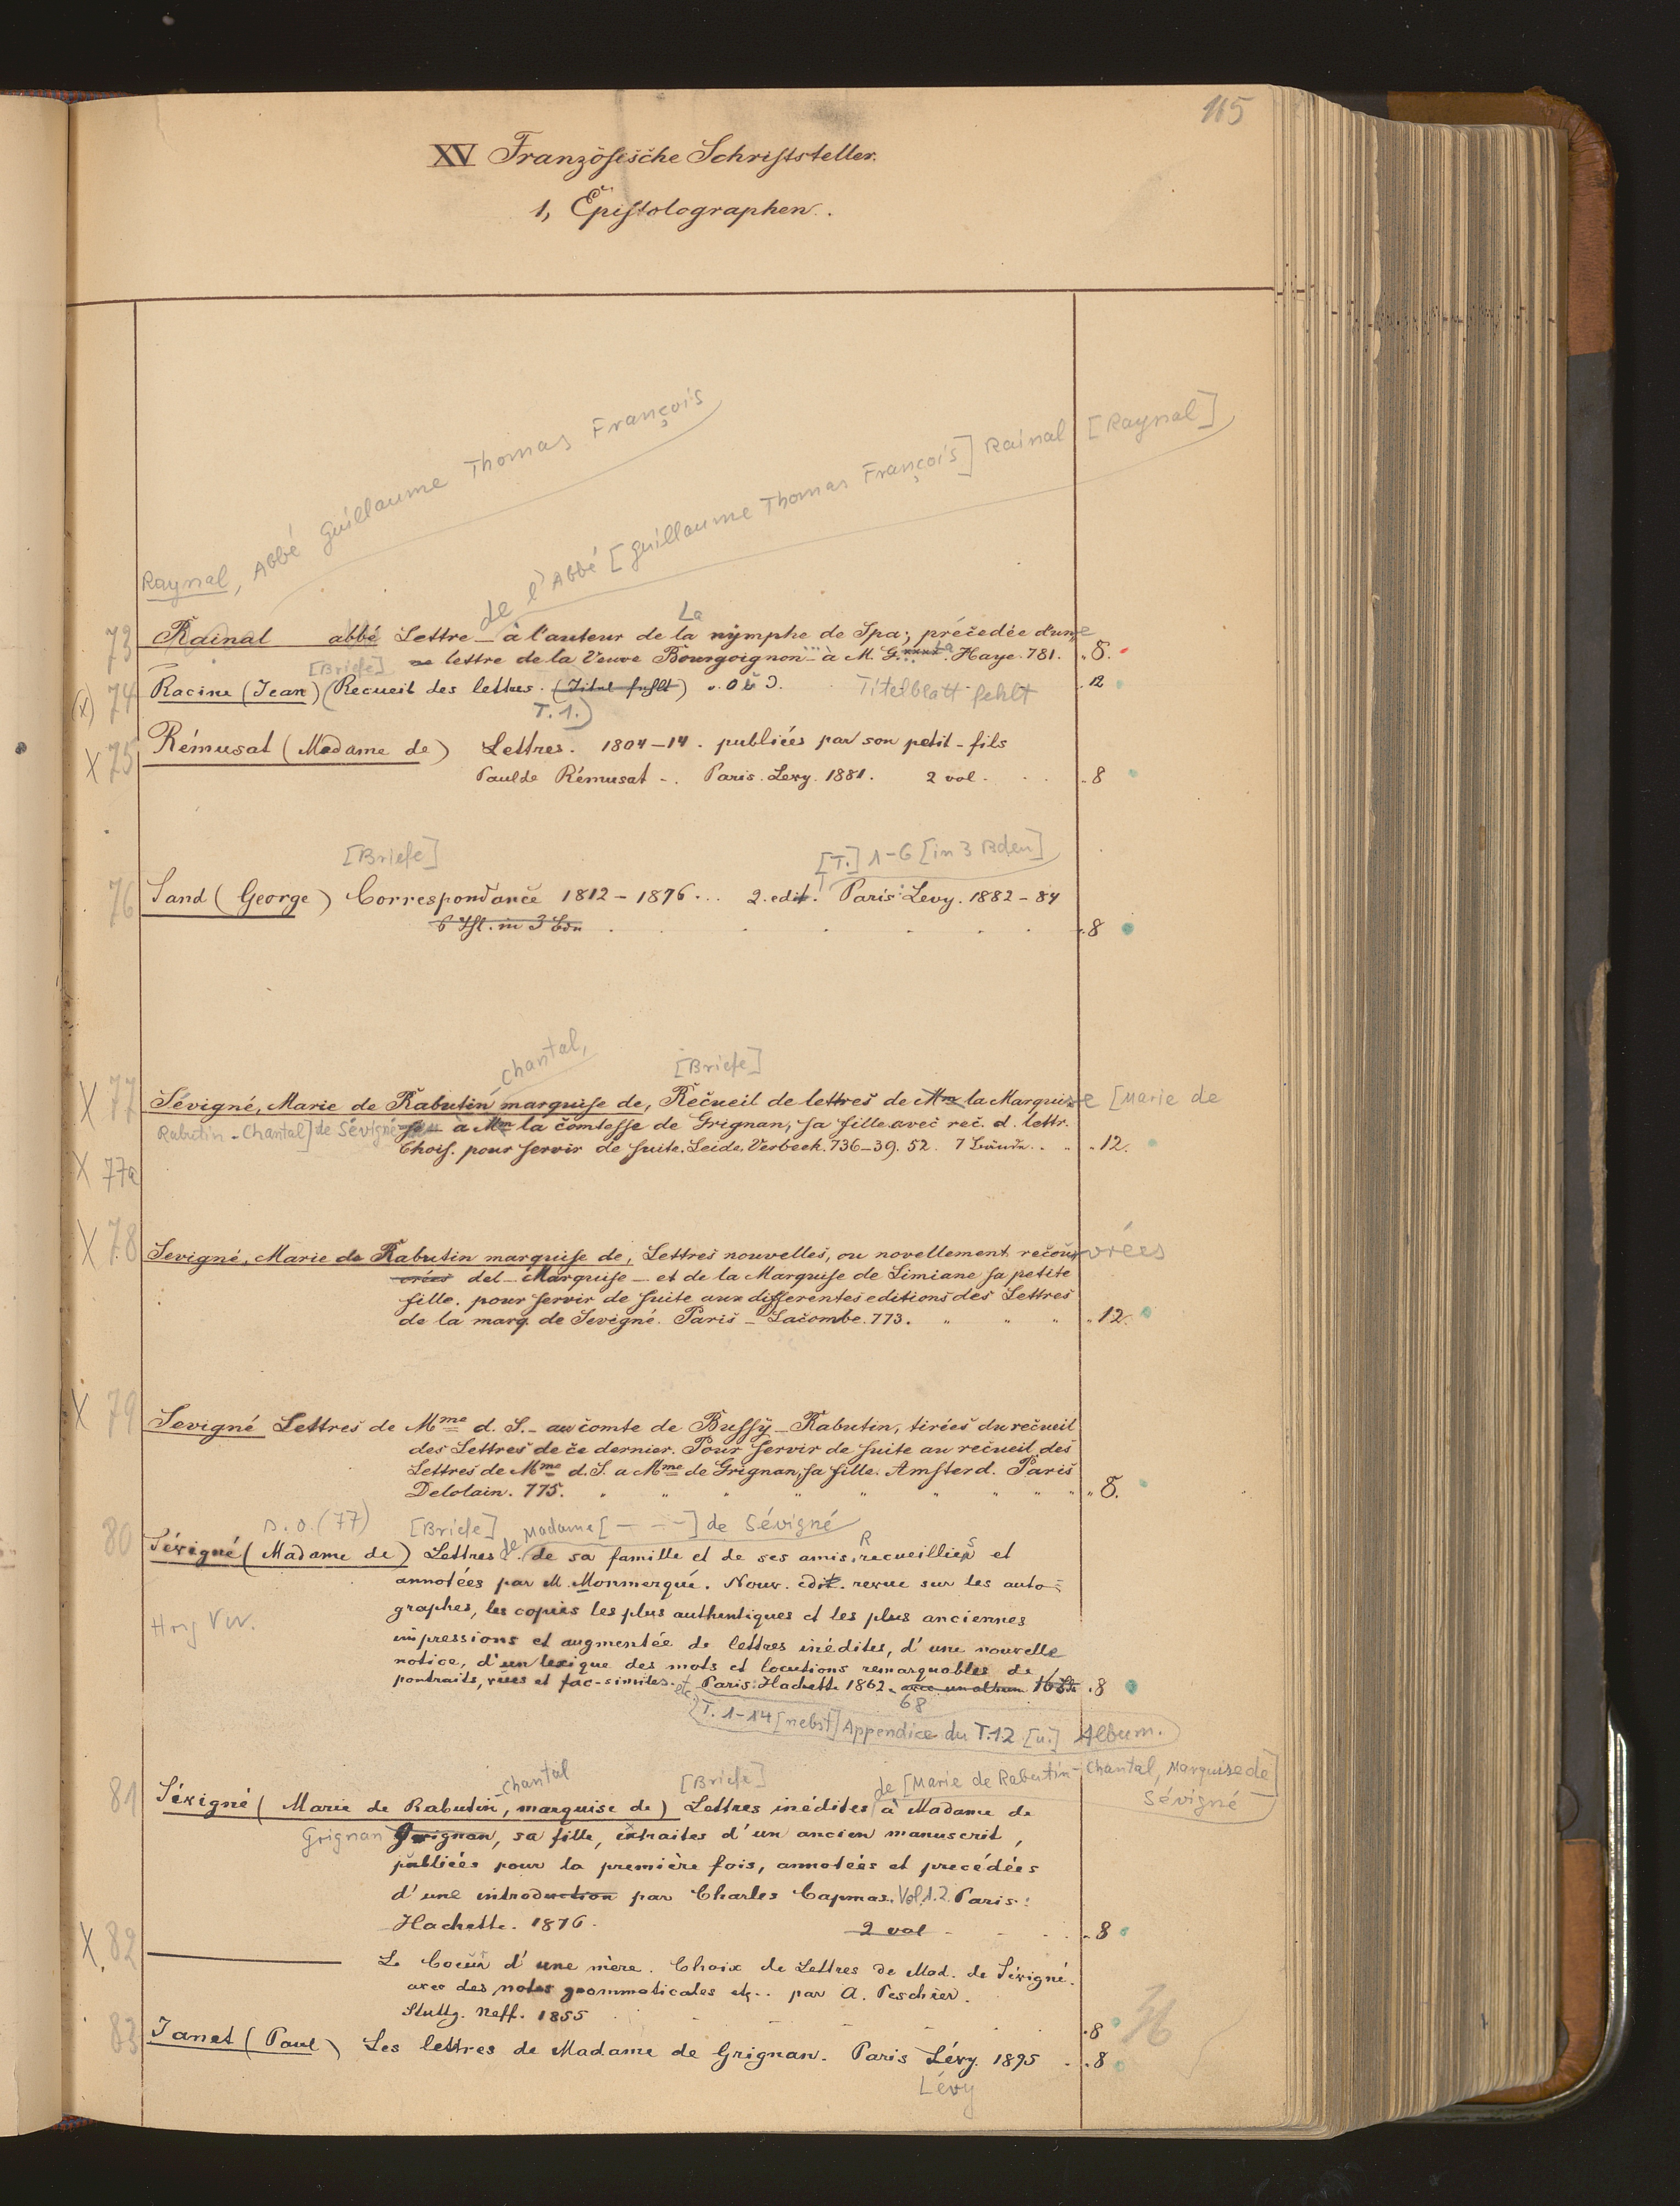 165
XV Französische Schriftsteller.
1, Epistolographen.
Raynal, Abbé Guillaume Thomas François
de l'Abbé [Guillaume Thomas François] Rainal [Raynal]
La
73 Rainal abbé Lettre – à l'auteur de la nymphe de Spa; précedée d'une
lettre de la Veuve Bourgoignon... à M. G.... Haye. 781. 8.
[Briefe]
(x) 74 Racine (Jean) (Recueil des lettres. (Titel fehlt) Titelblatt fehlt 12
T. 1.)
X 75 Rémusat (Madame de) Lettres. 1804–14. publiées par son petit-fils
Paul de Rémusat –. Paris. Levy. 1881. 2 vol. 8
[Briefe] [T.] 1-6 [in 3 Bden]
76 Sand (George) Correspondance 1812–1876... 2. edit. Paris: Levy. 1882–84
6 Thl. in 3 Bdn 8
Chantal, [Briefe]
X 77 Sévigné, Marie de Rabutin marquise de, Recueil de lettres de Mme la Marquise [Marie de
Rabutin-Chantal] de Sévigné à Mme la comtesse de Grignan, sa fille avec rec. d. lettr.
Chois. pour servir de suite. Leide. Verbeek. 736–39. 52. 7 Bände. 12.
X 77a
X 78 Sevigné, Marie de Rabutin marquise de, Lettres nouvelles, ou novellement recouvrées
del – Marquise – et de la Marquise de Simiane sa petite
fille. pour servir de suite aux differentes editions des Lettres
de la marq. de Sevigné. Paris – Lacombe. 773. 12.
X 79 Sevigné Lettres de Mme d. S. – au comte de Bussy-Rabutin, tirées du recueil
des Lettres de ce dernier. Pour servir de suite au recueil des
Lettres de Mme d. S. a Mme de Grignan, sa fille. Amsterd. Paris
Delolain. 775. 8.
s. o. (77) [Briefe] de Madame [– – –] de Sévigné
80 Sévigné (Madame de) Lettres de sa famille et de ses amis, recueillies et
annotées par M. Monmerqué. Nouv. edit. revue sur les auto-
graphes, les copies les plus authentiques et les plus anciennes
impressions et augmentée de lettres inédites, d'une nouvelle
notice, d'un lexique des mots et locutions remarquables de
portraits, vues et fac-similes. etc. Paris: Hachette 1862. avec un album 8
68
T. 1-14 [nebst] Appendice du T.12 [u.] Album.
Chantal [Briefe] de [Marie de Rabutin-Chantal, Marquise de
Sévigné]
81 Sévigné (Marie de Rabutin, marquise de) Lettres inédites à Madame de
Grignan Grignan, sa fille, extraites d'un ancien manuscrit,
publiées pour la première fois, annotées et precédées
d'une introduction par Charles Capmas. Vol 1.2. Paris:
Hachette. 1876. 2 vol 8
X 82 Le Coeur d'une mère. Choix de Lettres de Mad. de Sévigné.
avec des notes grammaticales etc.. par A. Peschier.
Stuttg. Neff. 1855 8
83 Janet (Paul) Les lettres de Madame de Grignan. Paris Lévy. 1895 8
Lévy